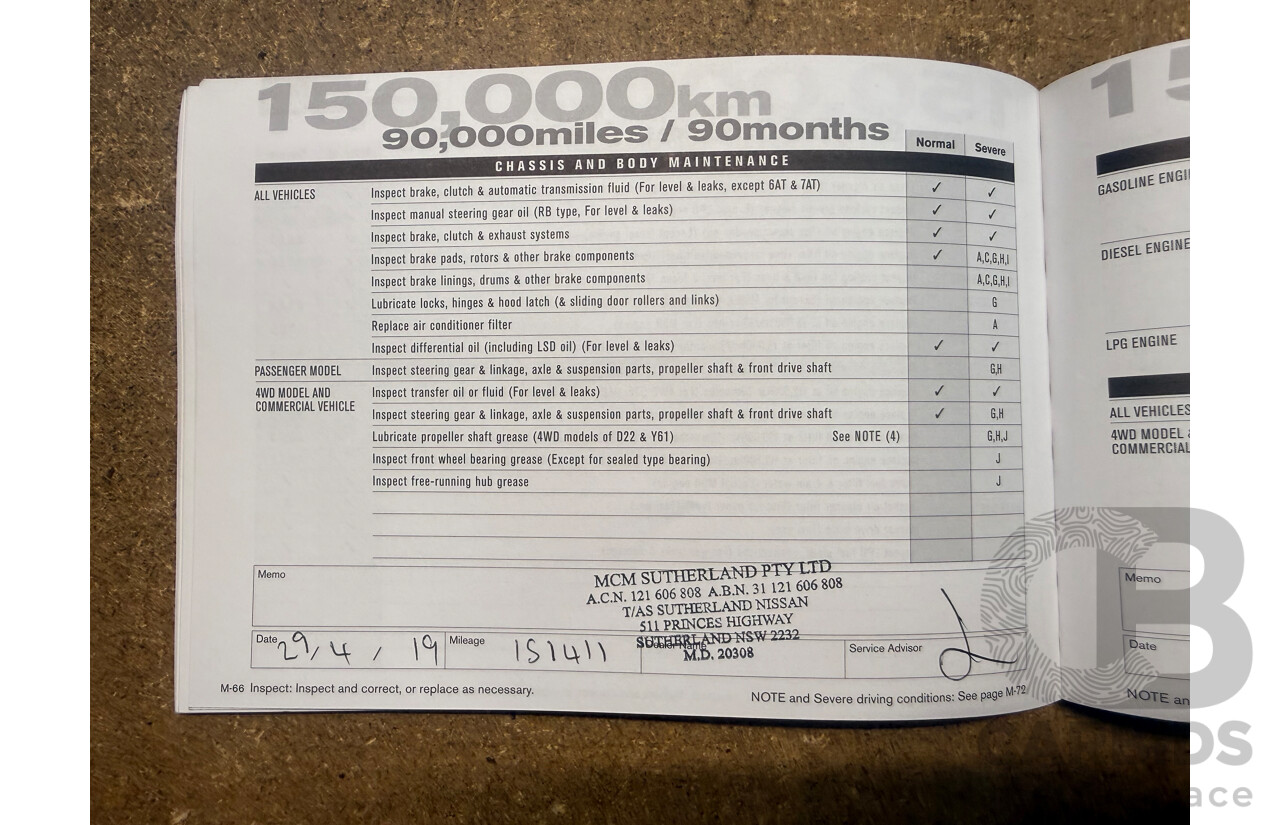 150,000km
90,000miles / 90months
Normal Severe
CHASSIS AND BODY MAINTENANCE
ALL VEHICLES Inspect brake, clutch & automatic transmission fluid (For level & leaks, except 6AT & 7AT) ✓ ✓
Inspect manual steering gear oil (RB type, For level & leaks) ✓ ✓
Inspect brake, clutch & exhaust systems ✓ ✓
Inspect brake pads, rotors & other brake components ✓ A,C,G,H,I
Inspect brake linings, drums & other brake components A,C,G,H,I
Lubricate locks, hinges & hood latch (& sliding door rollers and links) G
Replace air conditioner filter A
Inspect differential oil (including LSD oil) (For level & leaks) ✓ ✓
PASSENGER MODEL Inspect steering gear & linkage, axle & suspension parts, propeller shaft & front drive shaft G,H
4WD MODEL AND
COMMERCIAL VEHICLE
Inspect transfer oil or fluid (For level & leaks) ✓ ✓
Inspect steering gear & linkage, axle & suspension parts, propeller shaft & front drive shaft ✓ G,H
Lubricate propeller shaft grease (4WD models of D22 & Y61) See NOTE (4) G,H,J
Inspect front wheel bearing grease (Except for sealed type bearing) J
Inspect free-running hub grease J
Memo
MCM SUTHERLAND PTY LTD
A.C.N. 121 606 808 A.B.N. 31 121 606 808
T/AS SUTHERLAND NISSAN
511 PRINCES HIGHWAY
SUTHERLAND NSW 2232
M.D. 20308
Date 29 / 4 / 19 Mileage 151411 Dealer Name Service Advisor
M-66 Inspect: Inspect and correct, or replace as necessary.
NOTE and Severe driving conditions: See page M-72
15
GASOLINE ENGI
DIESEL ENGINE
LPG ENGINE
ALL VEHICLES
4WD MODEL
COMMERCIAL
Memo
Date
NOTE an